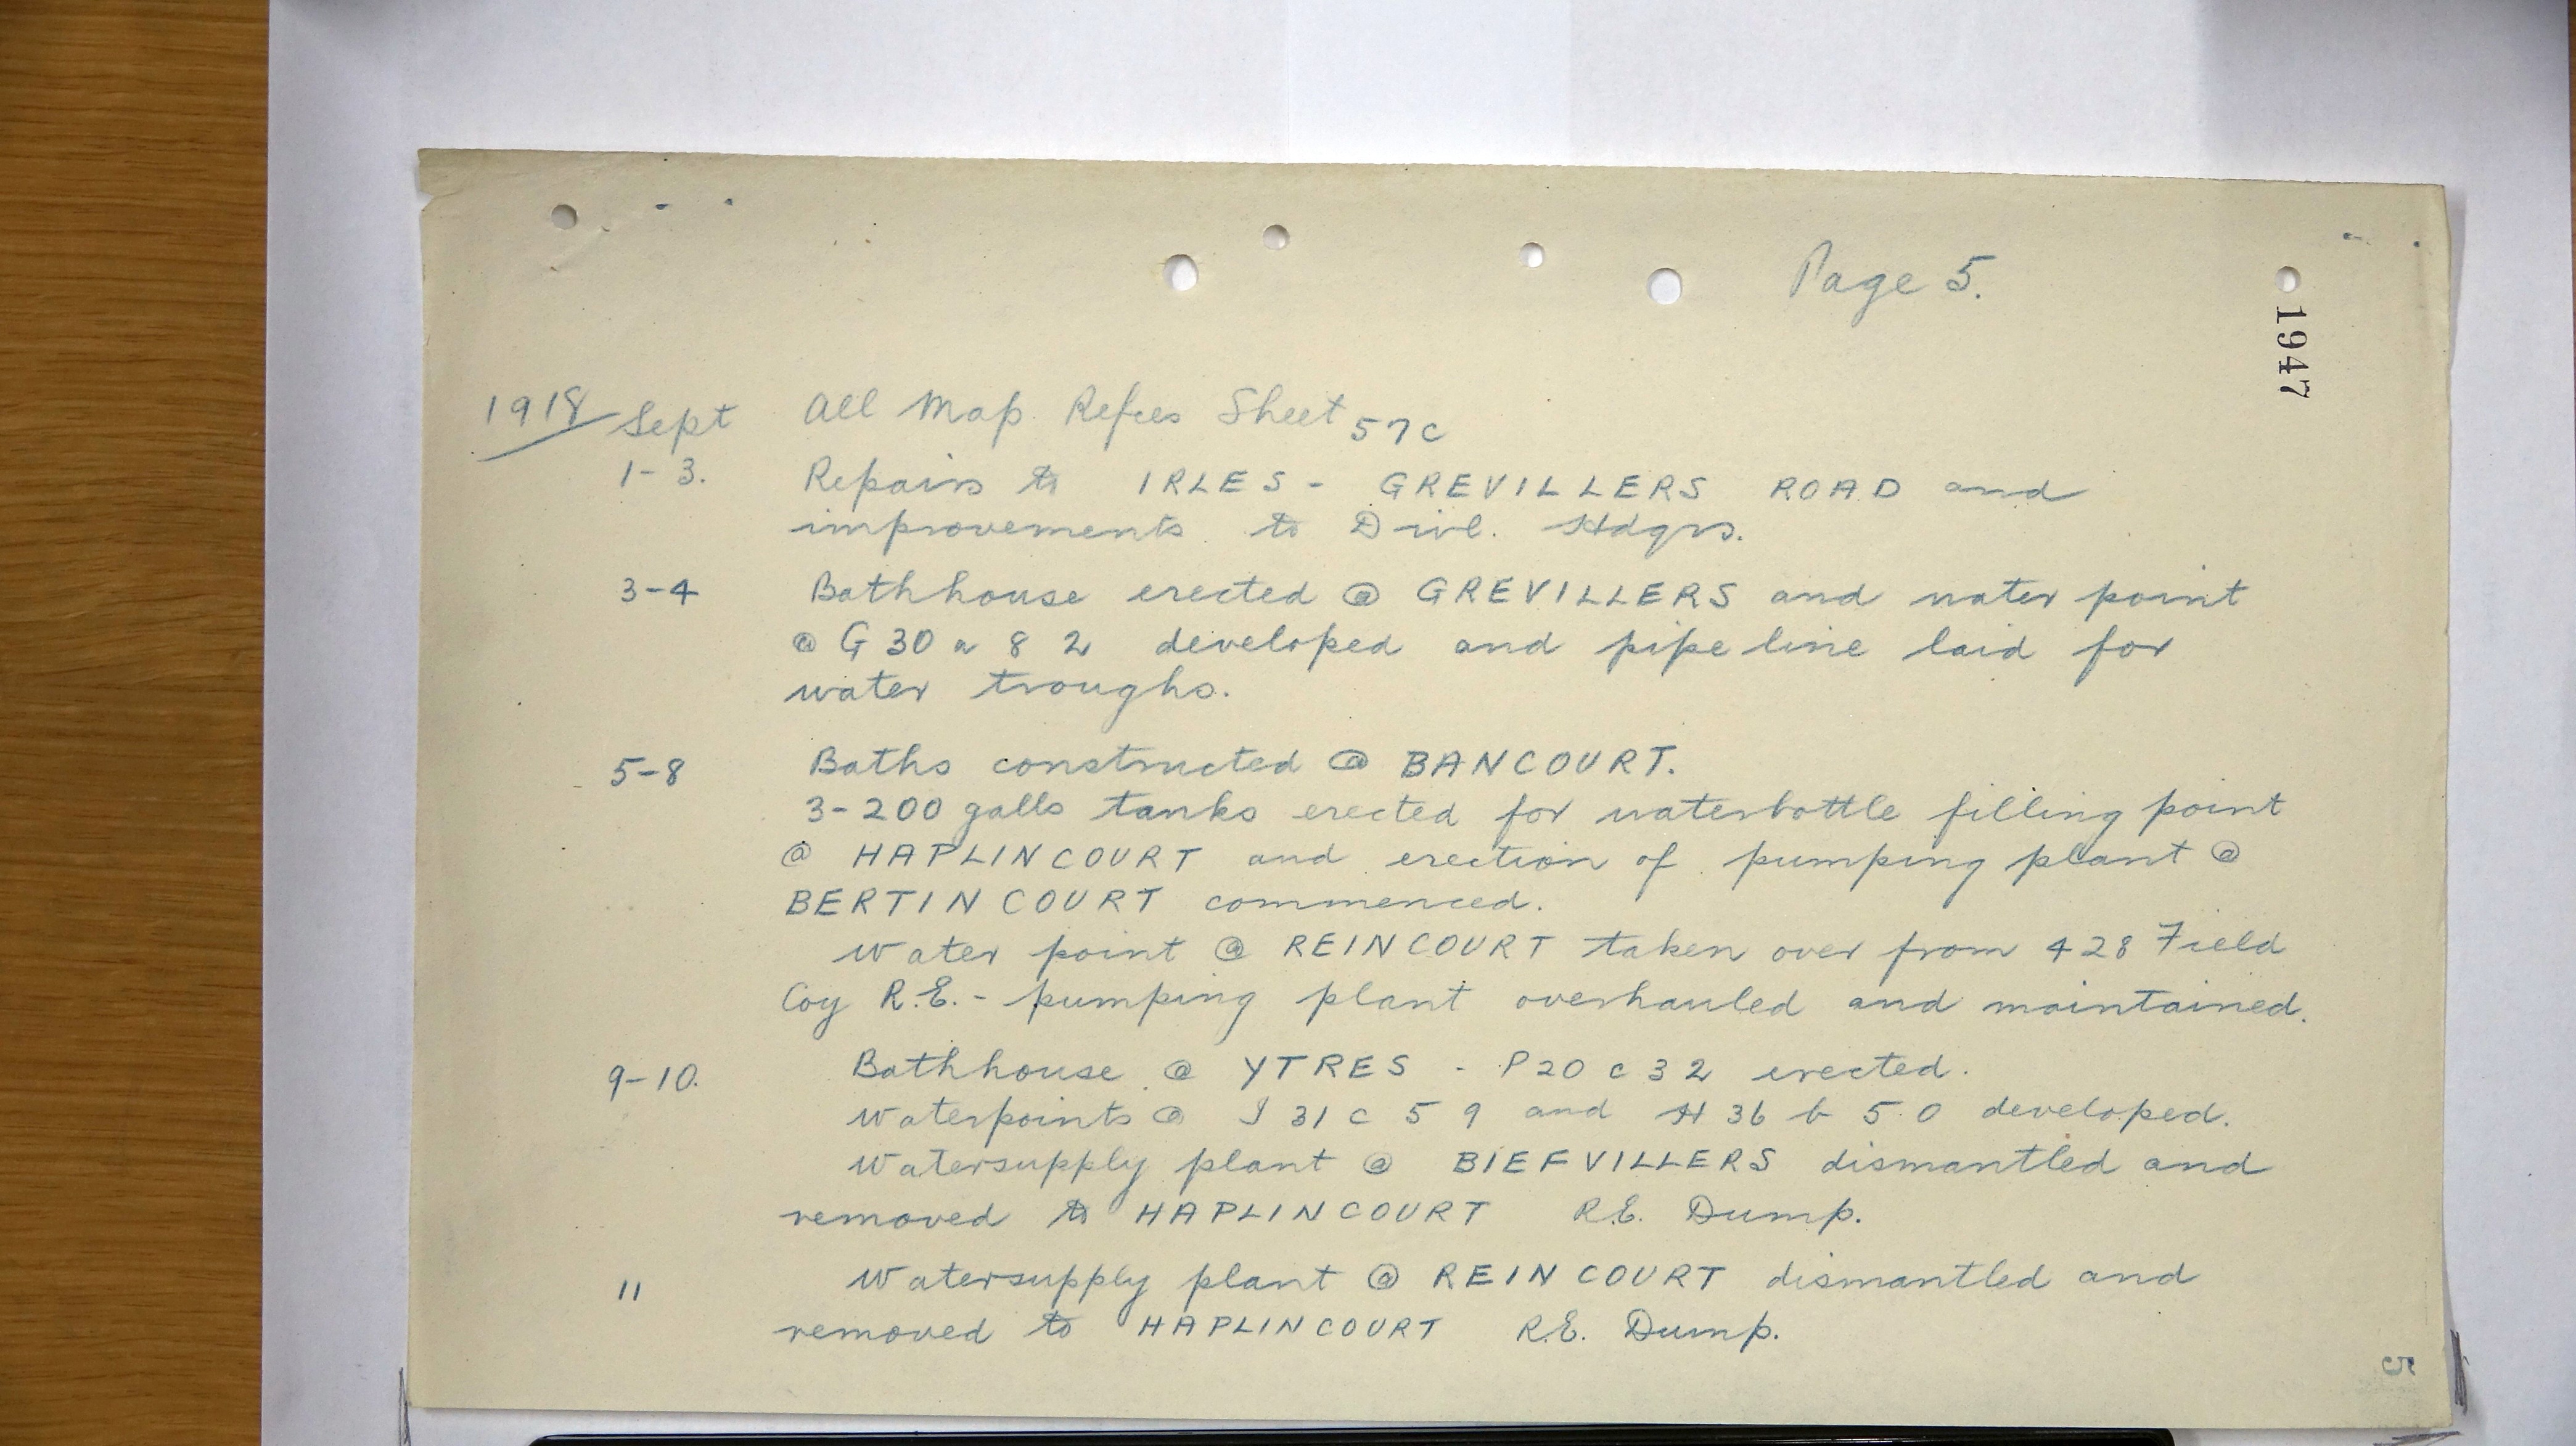 Page 5.
1947
1918 Sept All Map Refces Sheet 57c
1-3. Repairs to IRLES - GREVILLERS ROAD and
improvements to Divl. Hdqrs.
3-4 Bathhouse erected @ GREVILLERS and water point
@ G 30 a 8 2 developed and pipe line laid for
water troughs.
5-8 Baths constructed @ BANCOURT.
3-200 galls tanks erected for waterbottle filling point
@ HAPLINCOURT and erection of pumping plant @
BERTINCOURT commenced.
Water point @ REINCOURT taken over from 428 Field
Coy R.E. - pumping plant overhauled and maintained.
9-10. Bathhouse @ YTRES - P20 c 3 2 erected.
Waterpoints @ I 31 c 5 9 and H 36 b 5.0 developed.
Watersupply plant @ BIEFVILLERS dismantled and
removed to HAPLINCOURT R.E. Dump.
11 Watersupply plant @ REINCOURT dismantled and
removed to HAPLINCOURT R.E. Dump.
5